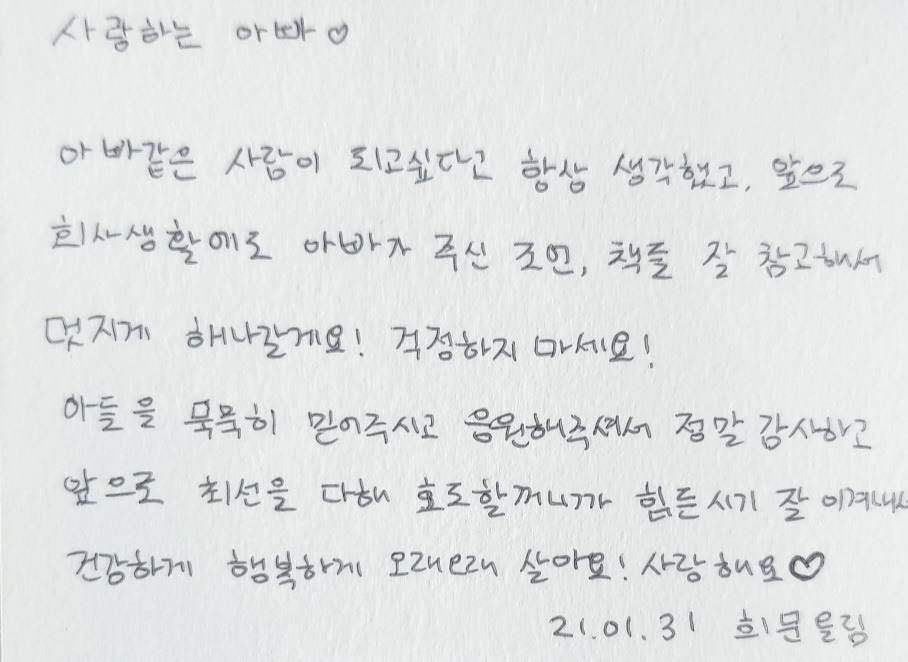 사랑하는 아빠♡
아빠같은 사람이 되고싶다고 항상 생각했고, 앞으로
회사생활에도 아빠가 주신 조언, 책들 잘 참고해서
멋지게 해나갈게요! 걱정하지 마세요!
아들을 묵묵히 믿어주시고 응원해주셔서 정말 감사하고
앞으로 최선을 다해 효도할꺼니까 힘든시기 잘 이겨내서
건강하게 행복하게 오래오래 살아요! 사랑해요♡
21.01.31 희문올림